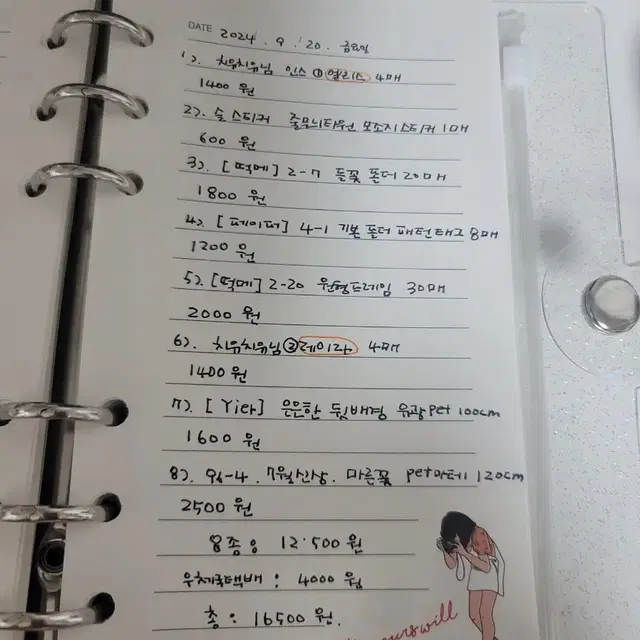 DATE 2024. 9. 20. 금요일
1). 치유치유님 인스 ① 엘리스 4매
1400 원
2). 솔스티커 줄무늬타원 모조지스티커 1매
600 원
3). [떡메] 2-7 들꽃 폴더 20매
1800 원
4). [페이퍼] 4-1 기본 폴더 패턴태그 8매
1200 원
5). [떡메] 2-20 원형프레임 30매
2000 원
6). 치유치유님 ② 레이라 4매
1400 원
7). [Yier] 은은한 뒷배경 유광pet 100cm
1600 원
8). 96-4. 7월신상. 마른꽃 pet마테 120cm
2500 원
8종 12.500 원
우체국택배 : 4000 원
총 : 16500 원.
will